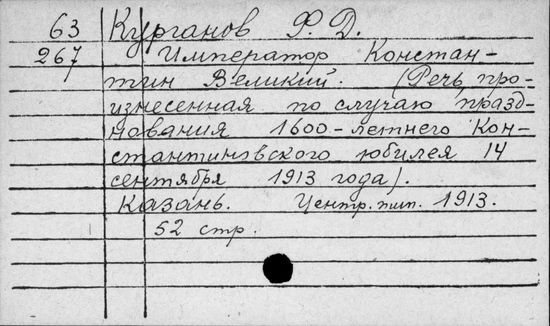 63 Курганов Ф. Д.
267 Император Констан-
тин Великий. (Речь, про-
изнесенная по случаю празд-
нования 1600-летнего Кон-
стантиновского юбилея 14
сентября 1913 года).
Казань. Центр. тип. 1913.
52 стр.